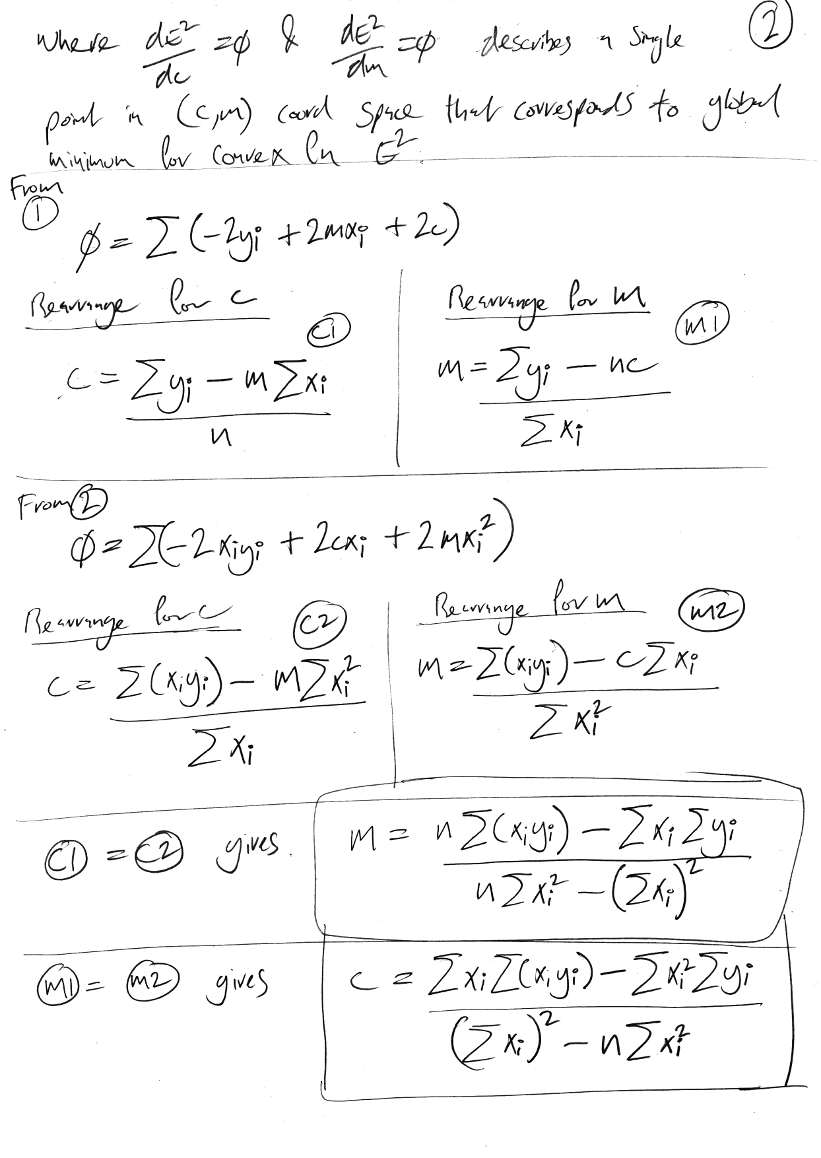 where dE²/dc = ϕ & dE²/dm = ϕ describes a single ②
point in (c,m) coord space that corresponds to global
minimum for convex fn E².
From
①
ϕ = Σ(-2yᵢ + 2mxᵢ + 2c)
Rearrange for c
C1
c = (Σyᵢ - mΣxᵢ) / n
Rearrange for m
m1
m = (Σyᵢ - nc) / Σxᵢ
From ②
ϕ = Σ(-2xᵢyᵢ + 2cxᵢ + 2mxᵢ²)
Rearrange for c
C2
c = (Σ(xᵢyᵢ) - mΣxᵢ²) / Σxᵢ
Rearrange for m
m2
m = (Σ(xᵢyᵢ) - cΣxᵢ) / Σxᵢ²
C1 = C2 gives. m = (nΣ(xᵢyᵢ) - ΣxᵢΣyᵢ) / (nΣxᵢ² - (Σxᵢ)²)
m1 = m2 gives c = (ΣxᵢΣ(xᵢyᵢ) - Σxᵢ²Σyᵢ) / ((Σxᵢ)² - nΣxᵢ²)